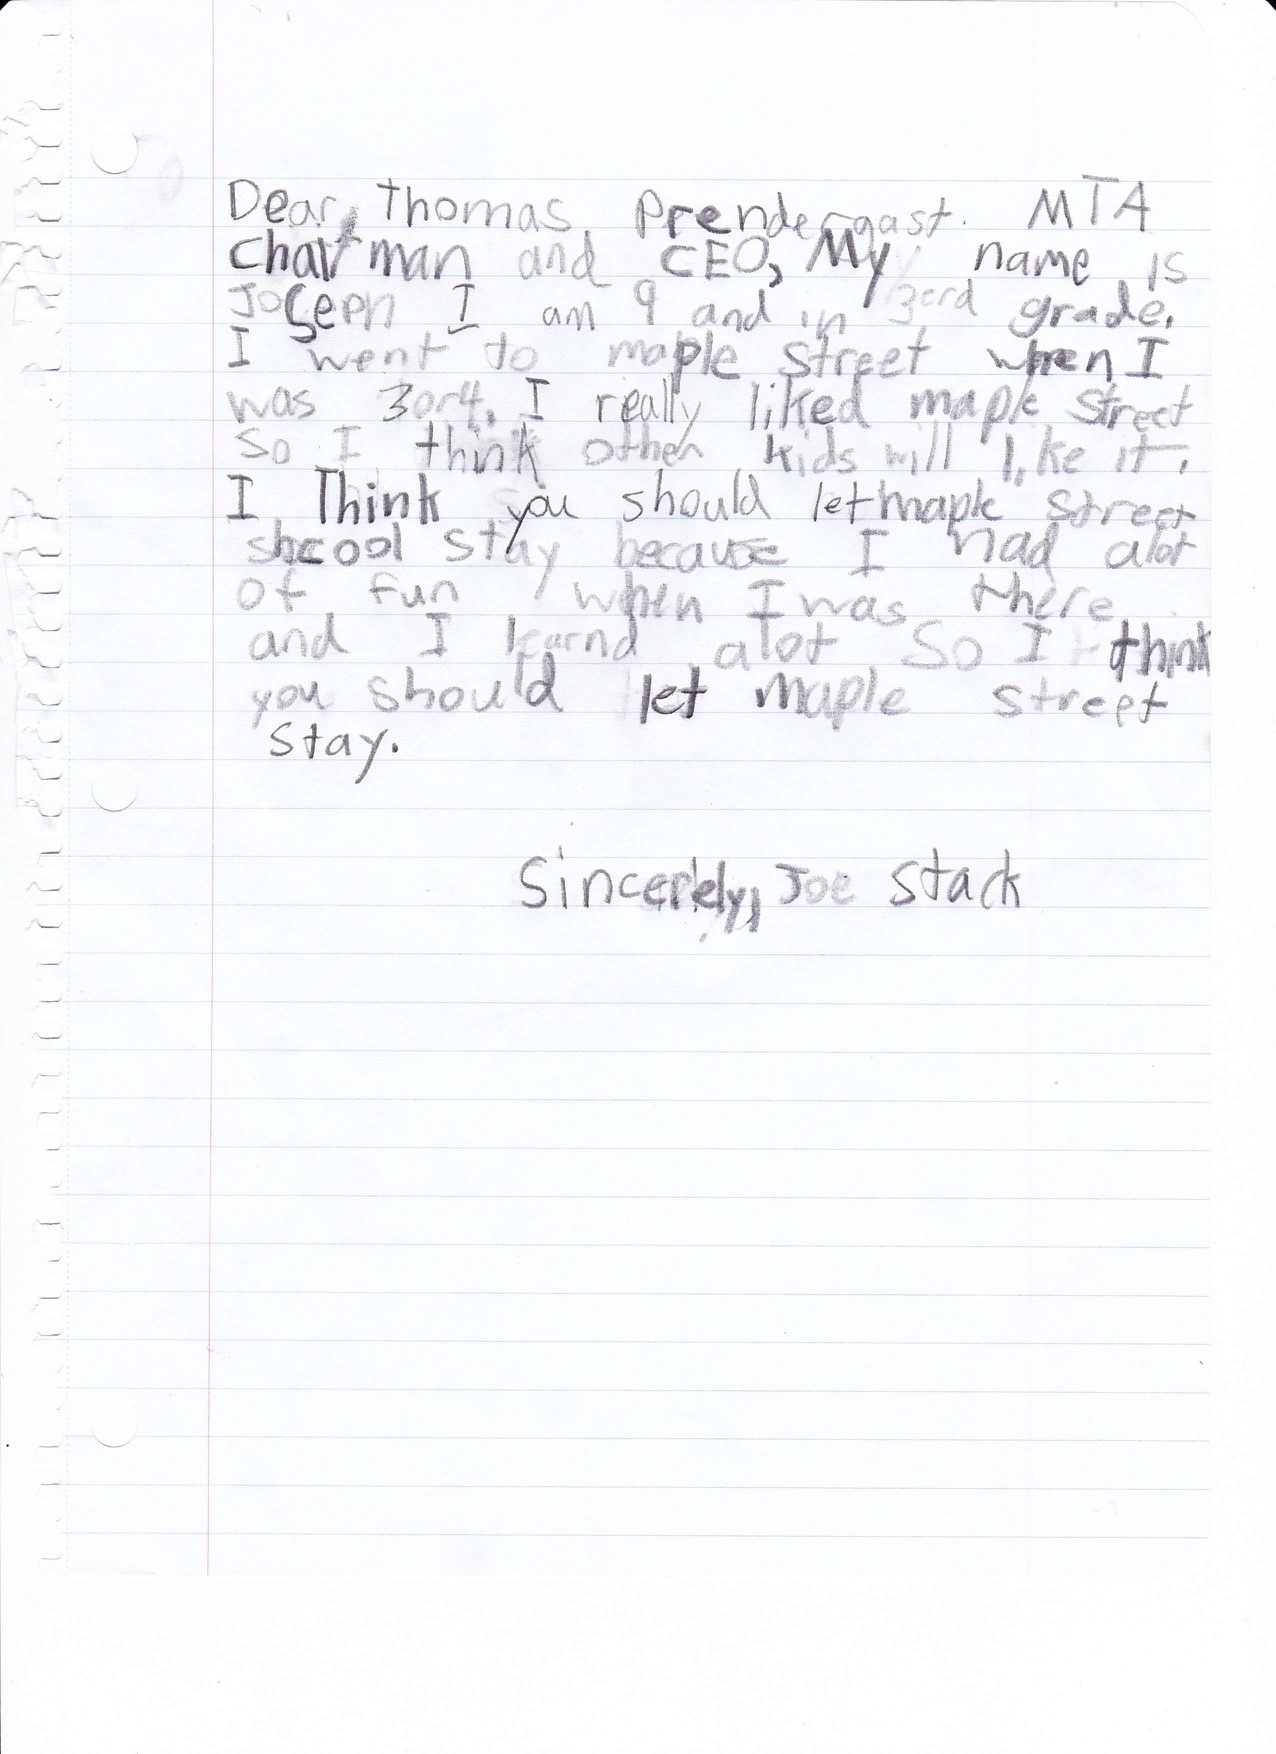 Dear, Thomas Prendergast. MTA
Chairman and CEO, My name is
Joseph I am 9 and in 3erd grade.
I went to maple street when I
was 3or4. I really liked maple street
So I think other kids will like it.
I Think you should let maple street
shcool stay because I had alot
of fun when I was there
and I learnd alot So I think
you should let maple street
stay.
Sincerely, Joe Stack